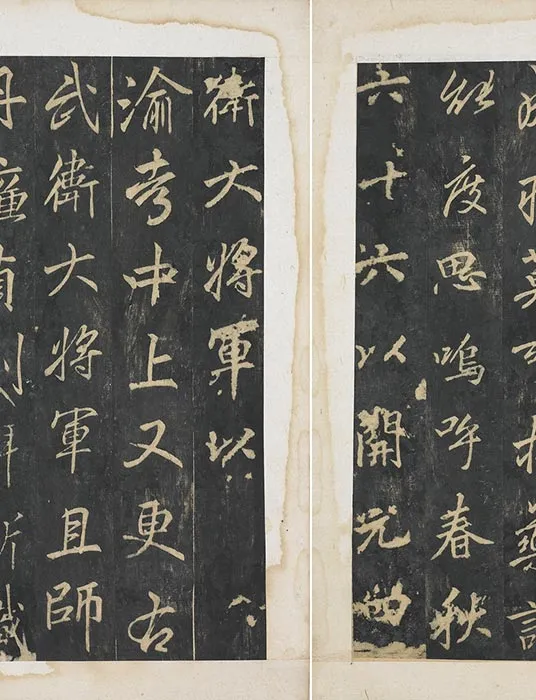 莫可藥
能度思嗚呼春秋
六十六以開元
衛大將軍以
渝考中上又更右
武衛大將軍且師
丹廉貞